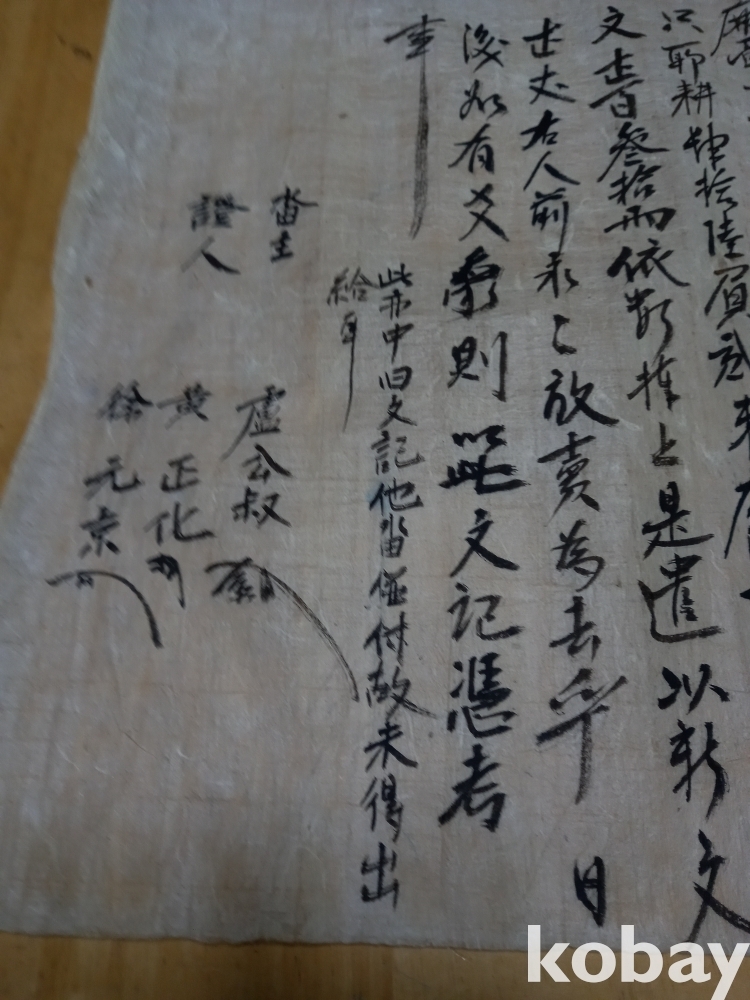 只耶耕肆拾陸負貳束
文壹百參拾兩依數捧上是遣以新文
士丈右人前永〻放賣為去乎日
後如有爻象則以此文記憑考
事
此亦中旧文記他畓並付故未得出
給事
畓主 盧公叔
證人 黃正化
徐元京
kobay